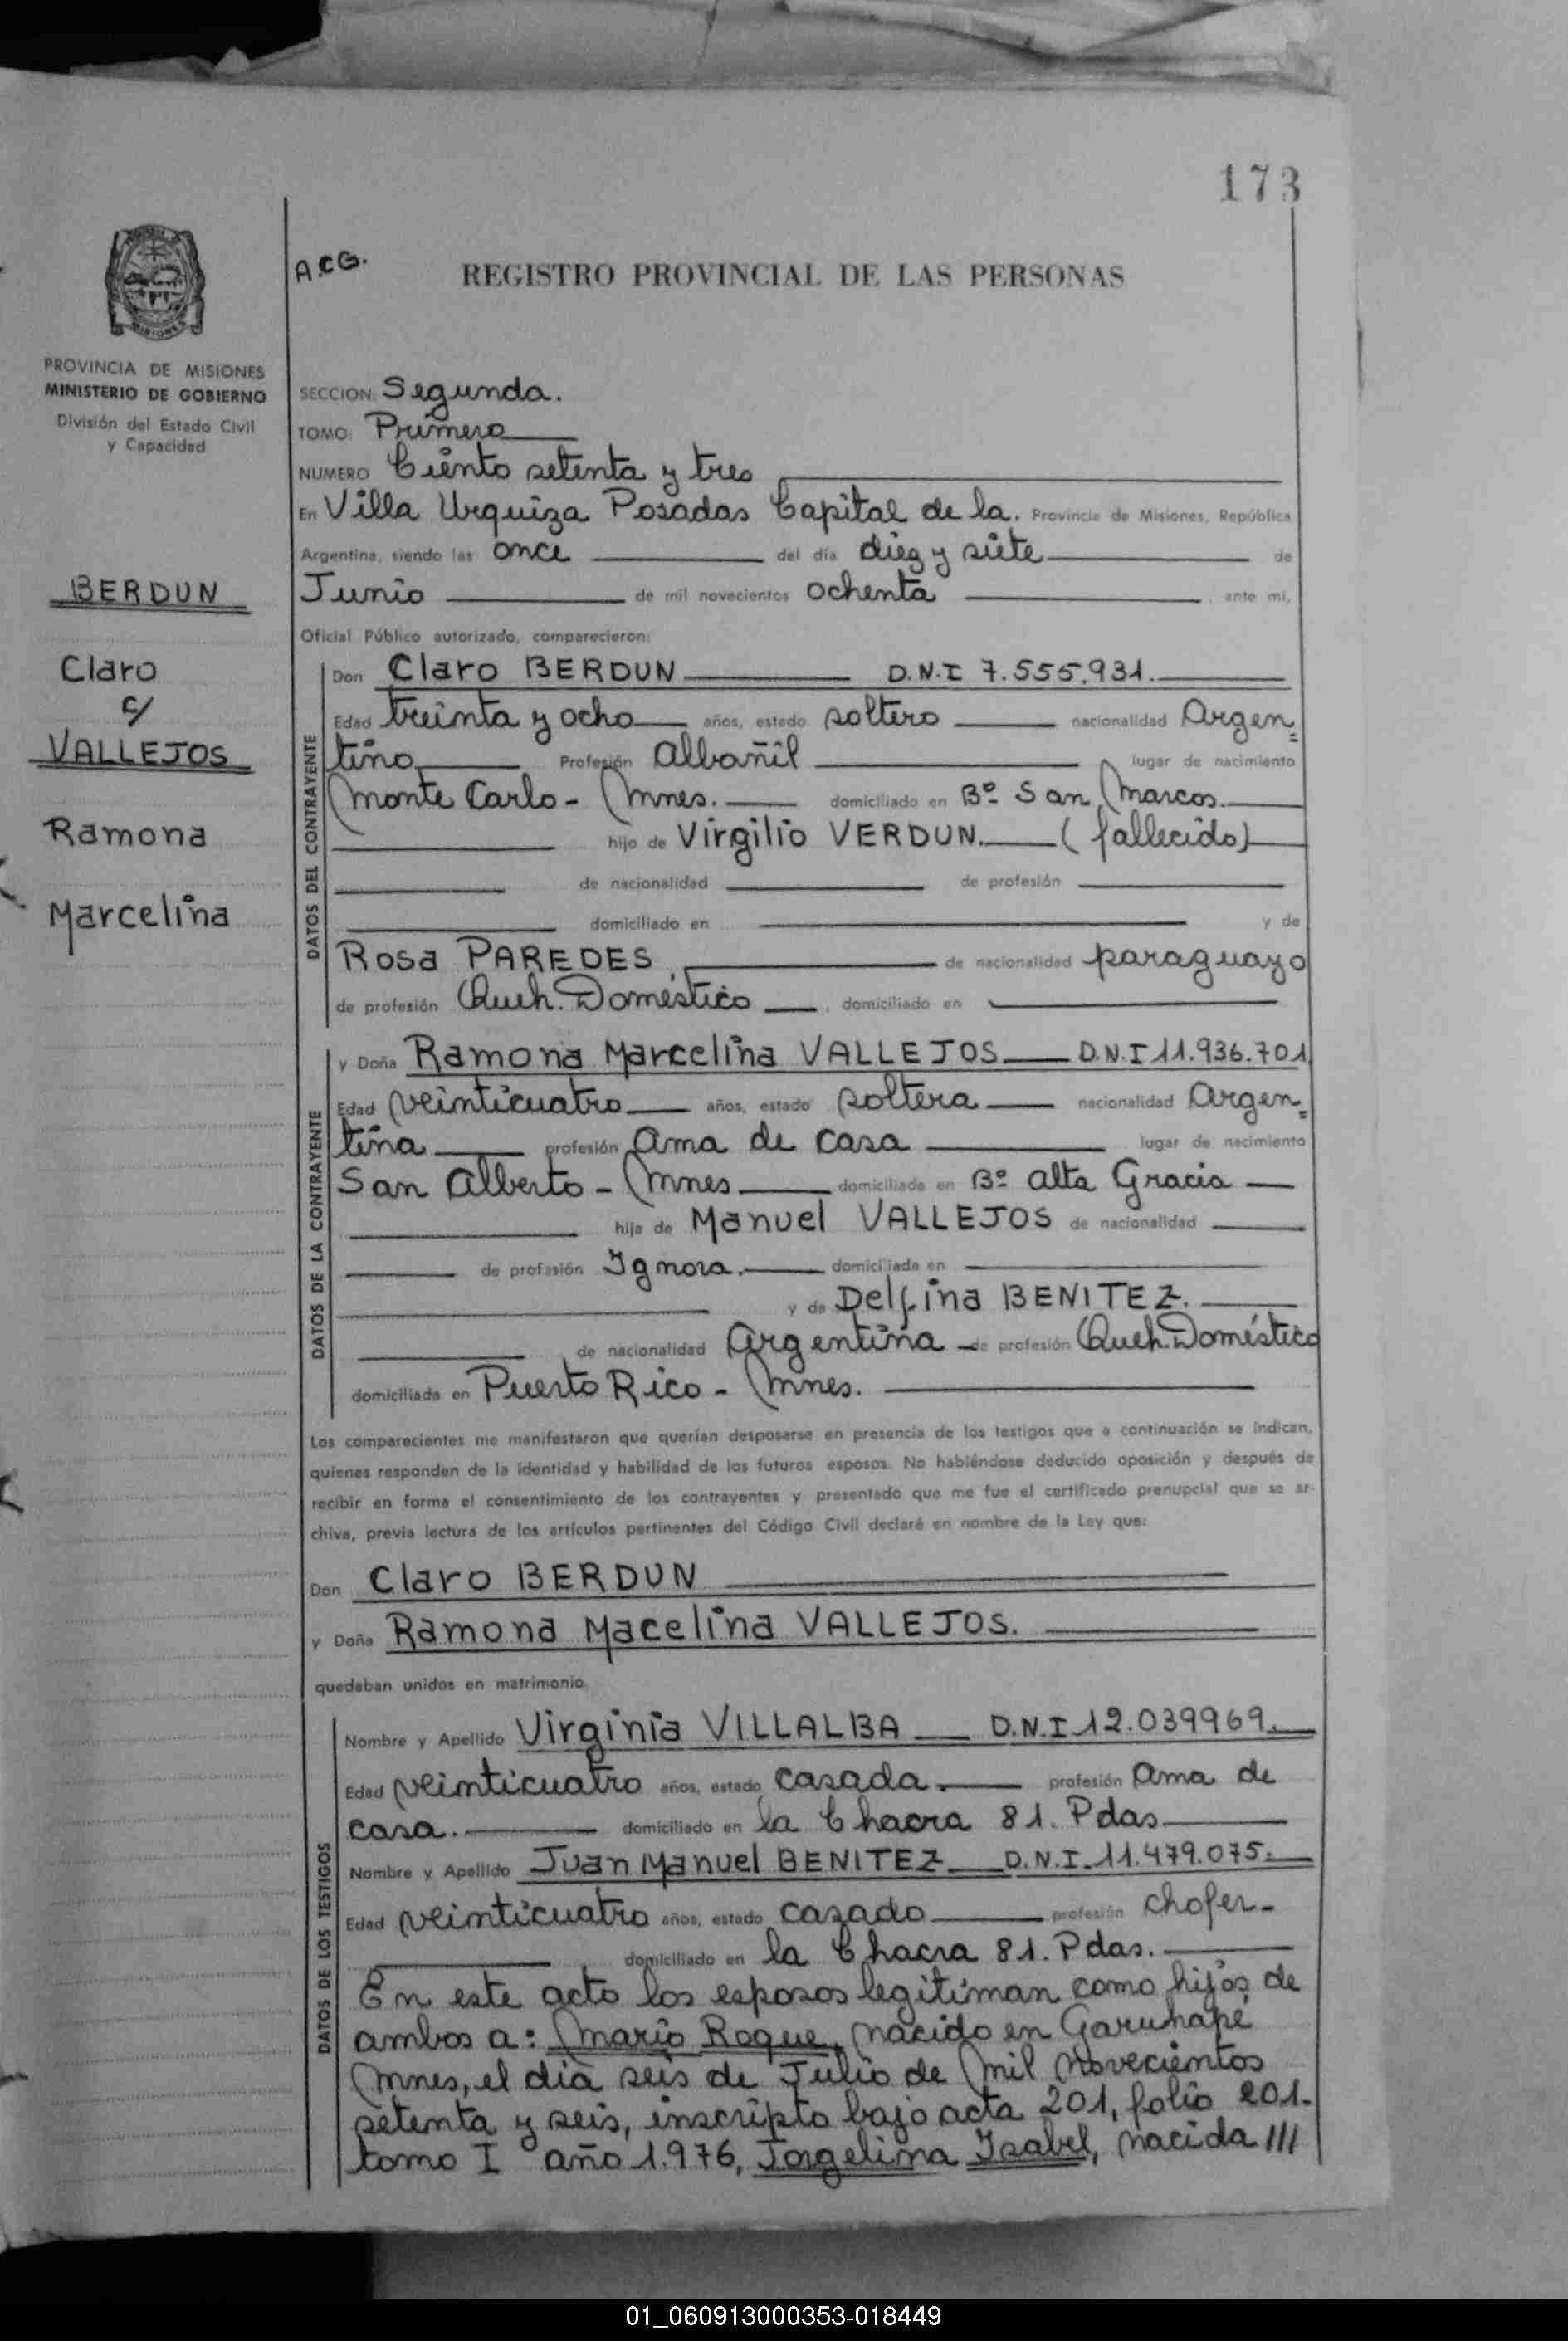 173
A.C.G.
REGISTRO PROVINCIAL DE LAS PERSONAS
MISIONES
PROVINCIA DE MISIONES
MINISTERIO DE GOBIERNO
División del Estado Civil
y Capacidad
BERDUN
Claro
c/
VALLEJOS
Ramona
Marcelina
SECCION: Segunda.
TOMO: Primero
NUMERO Ciento setenta y tres
En Villa Urquiza Posadas Capital de la. Provincia de Misiones, República
Argentina, siendo las once del día diez y siete de
Junio de mil novecientos ochenta , ante mi,
Oficial Público autorizado, comparecieron:
DATOS DEL CONTRAYENTE
Don Claro BERDUN D.N.I 7.555.931.
Edad treinta y ocho años, estado soltero nacionalidad Argen=
tino Profesión Albañil lugar de nacimiento
Monte Carlo - Mnes. domiciliado en Bº San Marcos.
hijo de Virgilio VERDUN. (fallecido)
de nacionalidad de profesión
domiciliado en y de
Rosa PAREDES, de nacionalidad paraguayo
de profesión Queh. Doméstico , domiciliado en
DATOS DE LA CONTRAYENTE
y Doña Ramona Marcelina VALLEJOS D.N.I 11.936.701
Edad veinticuatro años, estado soltera nacionalidad Argen=
tina profesión Ama de casa lugar de nacimiento
San Alberto - Mnes domiciliada en Bº Alta Gracia
hija de Manuel VALLEJOS de nacionalidad
de profesión Ignora. domiciliada en
y de Delfina BENITEZ.
de nacionalidad Argentina de profesión Queh. Doméstico
domiciliada en Puerto Rico - Mnes.
Los comparecientes me manifestaron que querían desposarse en presencia de los testigos que a continuación se indican,
quienes responden de la identidad y habilidad de los futuros esposos. No habiéndose deducido oposición y después de
recibir en forma el consentimiento de los contrayentes y presentado que me fue el certificado prenupcial que se ar-
chiva, previa lectura de los artículos pertinentes del Código Civil declaré en nombre de la Ley que:
Don Claro BERDUN
y Doña Ramona Macelina VALLEJOS.
quedaban unidos en matrimonio.
DATOS DE LOS TESTIGOS
Nombre y Apellido Virginia VILLALBA D.N.I 12.039969.
Edad veinticuatro años, estado casada. profesión Ama de
casa. domiciliado en la Chacra 81. Pdas.
Nombre y Apellido Juan Manuel BENITEZ D.N.I. 11.479.075.
Edad veinticuatro años, estado casado profesión chofer-
domiciliado en la Chacra 81. Pdas.
En este acto los esposos legitiman como hijos de
ambos a: Mario Roque, nacido en Garuhapé
Mnes, el día seis de Julio de Mil Novecientos
setenta y seis, inscripto bajo acta 201, folio 201.
tomo I año 1.976, Jorgelina Isabel, nacida ///
01_060913000353-018449